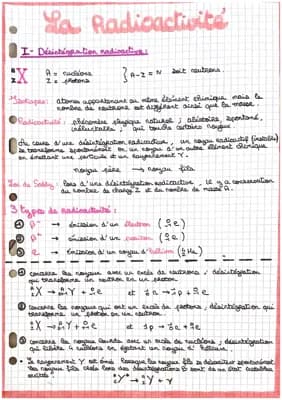 La Radioactivité
I- Désintégration radioactive:
A X Z A = nucléons } A-Z = N soit neutrons.
Z = protons
Isotopes: atomes appartenant au même élément chimique mais le
nombre de neutrons est différent ainsi que la masse.
Radioactivité: phénomène physique naturel; aléatoire, spontané,
inéluctable; qui touche certains noyaux.
Au cours d'une désintégration radioactive, un noyau radioactif (instable)
se transforme spontanément en un noyau d'un autre élément chimique
en émettant une particule et un rayonnement γ.
noyau père → noyau fils
Loi de Soddy: lors d'une désintégration radioactive, il y a conservation
du nombre de charge Z et du nombre de masse A.
3 types de radioactivité:
① β- → émission d'un électron (0 -1 e)
② β+ → émission d'un positon (0 1 e)
③ α → émission d'un noyau d'hélium (4 2 He)
① concerne les noyaux avec un excès de neutrons: désintégration
qui transforme un neutron en un proton.
A Z X → A Z+1 Y + 0 -1 e et 1 0 n → 1 1 p + 0 -1 e
② concerne les noyaux qui ont un excès de protons, désintégration qui
transforme un proton en un neutron.
A Z X → A Z-1 Y + 0 1 e et 1 1 p → 1 0 n + 0 1 e
③ concerne les noyaux lourds avec un excès de nucléons; désintégration
qui libère 4 nucléons en éjectant un noyau d'hélium.
• Le rayonnement γ est émis lorsque les noyaux fils se désexcitent spontanément.
Les noyaux fils créés lors des désintégrations β sont dans un état
excités.
A Z Y* → A Z Y + γ